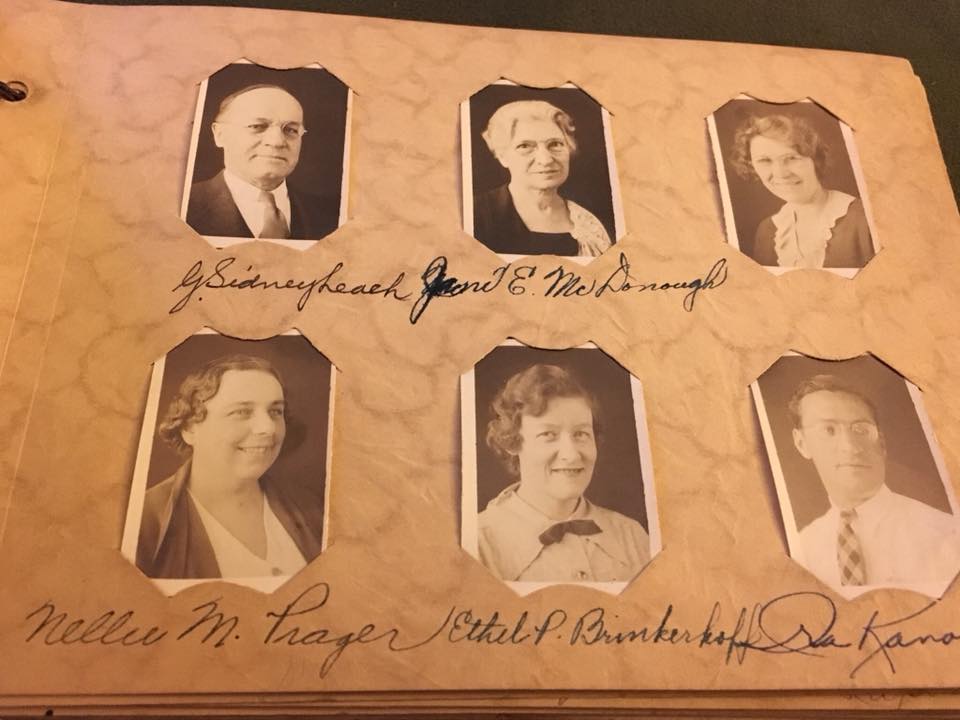 G. Sidney Leach Jane E. McDonough
Nellie M. Prager Ethel P. Brinkerhoff Ira